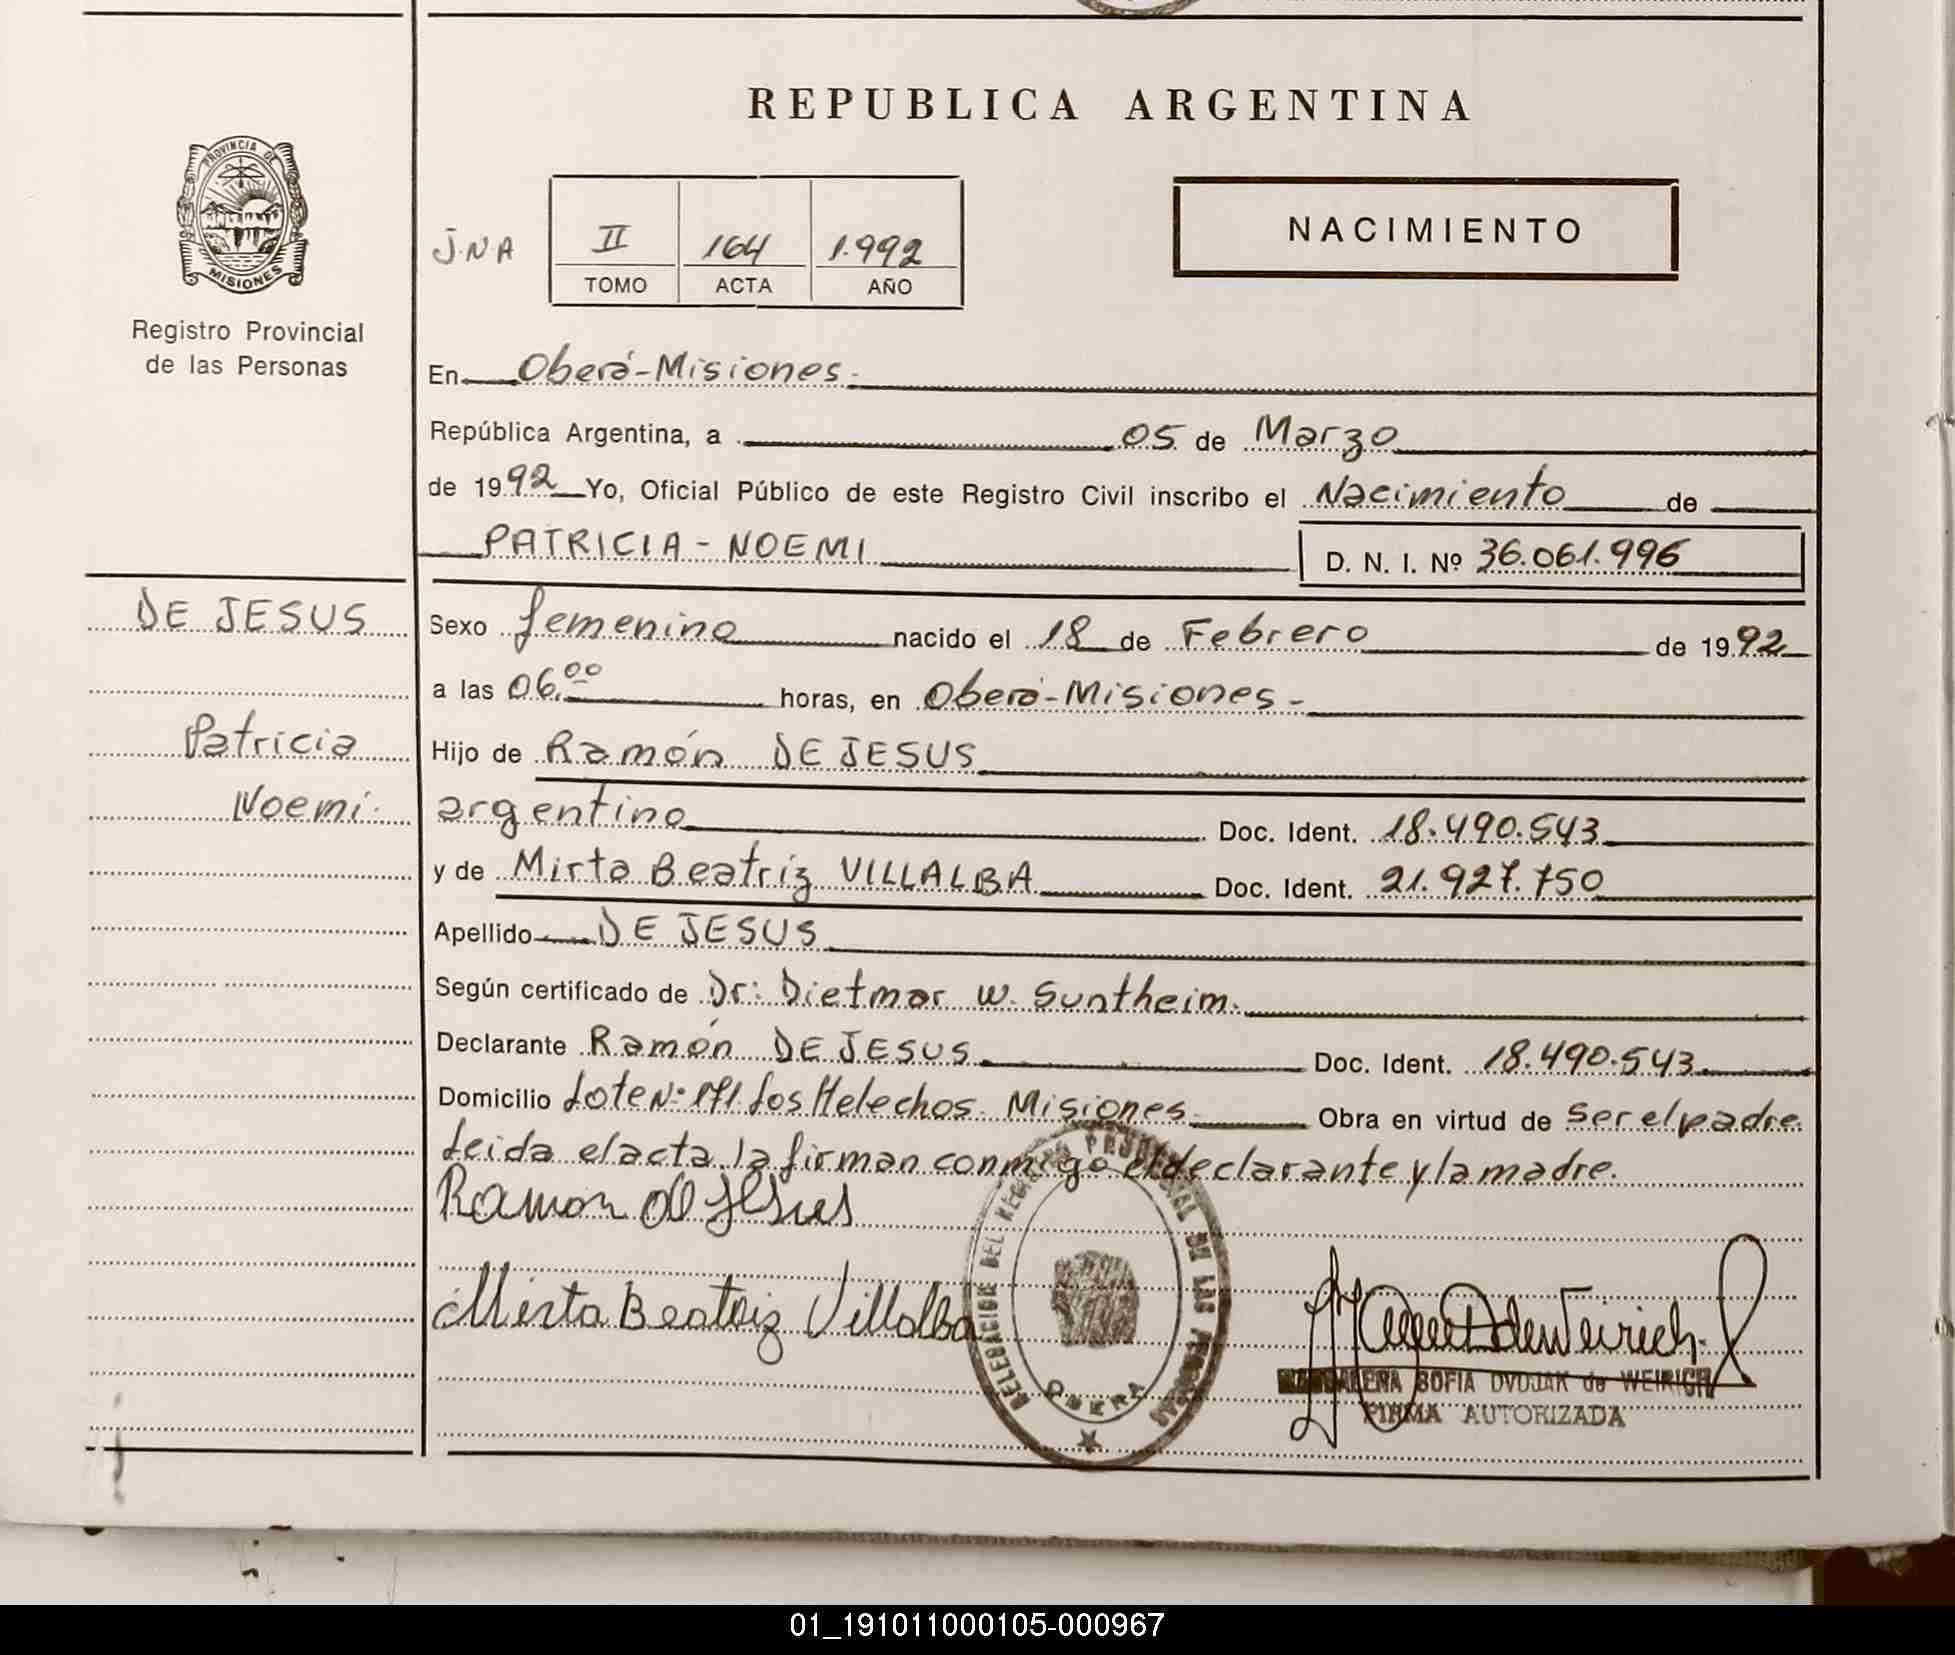 REPUBLICA ARGENTINA
PROVINCIA DE
MISIONES
Registro Provincial
de las Personas
J.N.A
II 164 1.992
TOMO ACTA AÑO
NACIMIENTO
En Oberá-Misiones.
República Argentina, a 05 de Marzo
de 1992 Yo, Oficial Público de este Registro Civil inscribo el Nacimiento de
PATRICIA - NOEMI
D. N. I. Nº 36.061.996
DE JESUS
Patricia
Noemí.
Sexo femenino nacido el 18 de Febrero de 1992
a las 06.00 horas, en Oberá-Misiones-
Hijo de Ramón DE JESUS
argentino Doc. Ident. 18.490.543
y de Mirta Beatriz VILLALBA Doc. Ident. 21.927.750
Apellido DE JESUS
Según certificado de Dr: Dietmar W. Suntheim.
Declarante Ramón DE JESUS Doc. Ident. 18.490.543
Domicilio Lote Nº 171. Los Helechos. Misiones Obra en virtud de ser el padre.
Leida el acta, la firman conmigo el declarante y la madre.
Ramon de Jesus
Mirta Beatriz Villalba
DELEGACION DEL REGISTRO PROVINCIAL DE LAS PERSONAS
OBERA
MAGDALENA SOFIA DVOJAK de WEIRICH
FIRMA AUTORIZADA
01_191011000105-000967